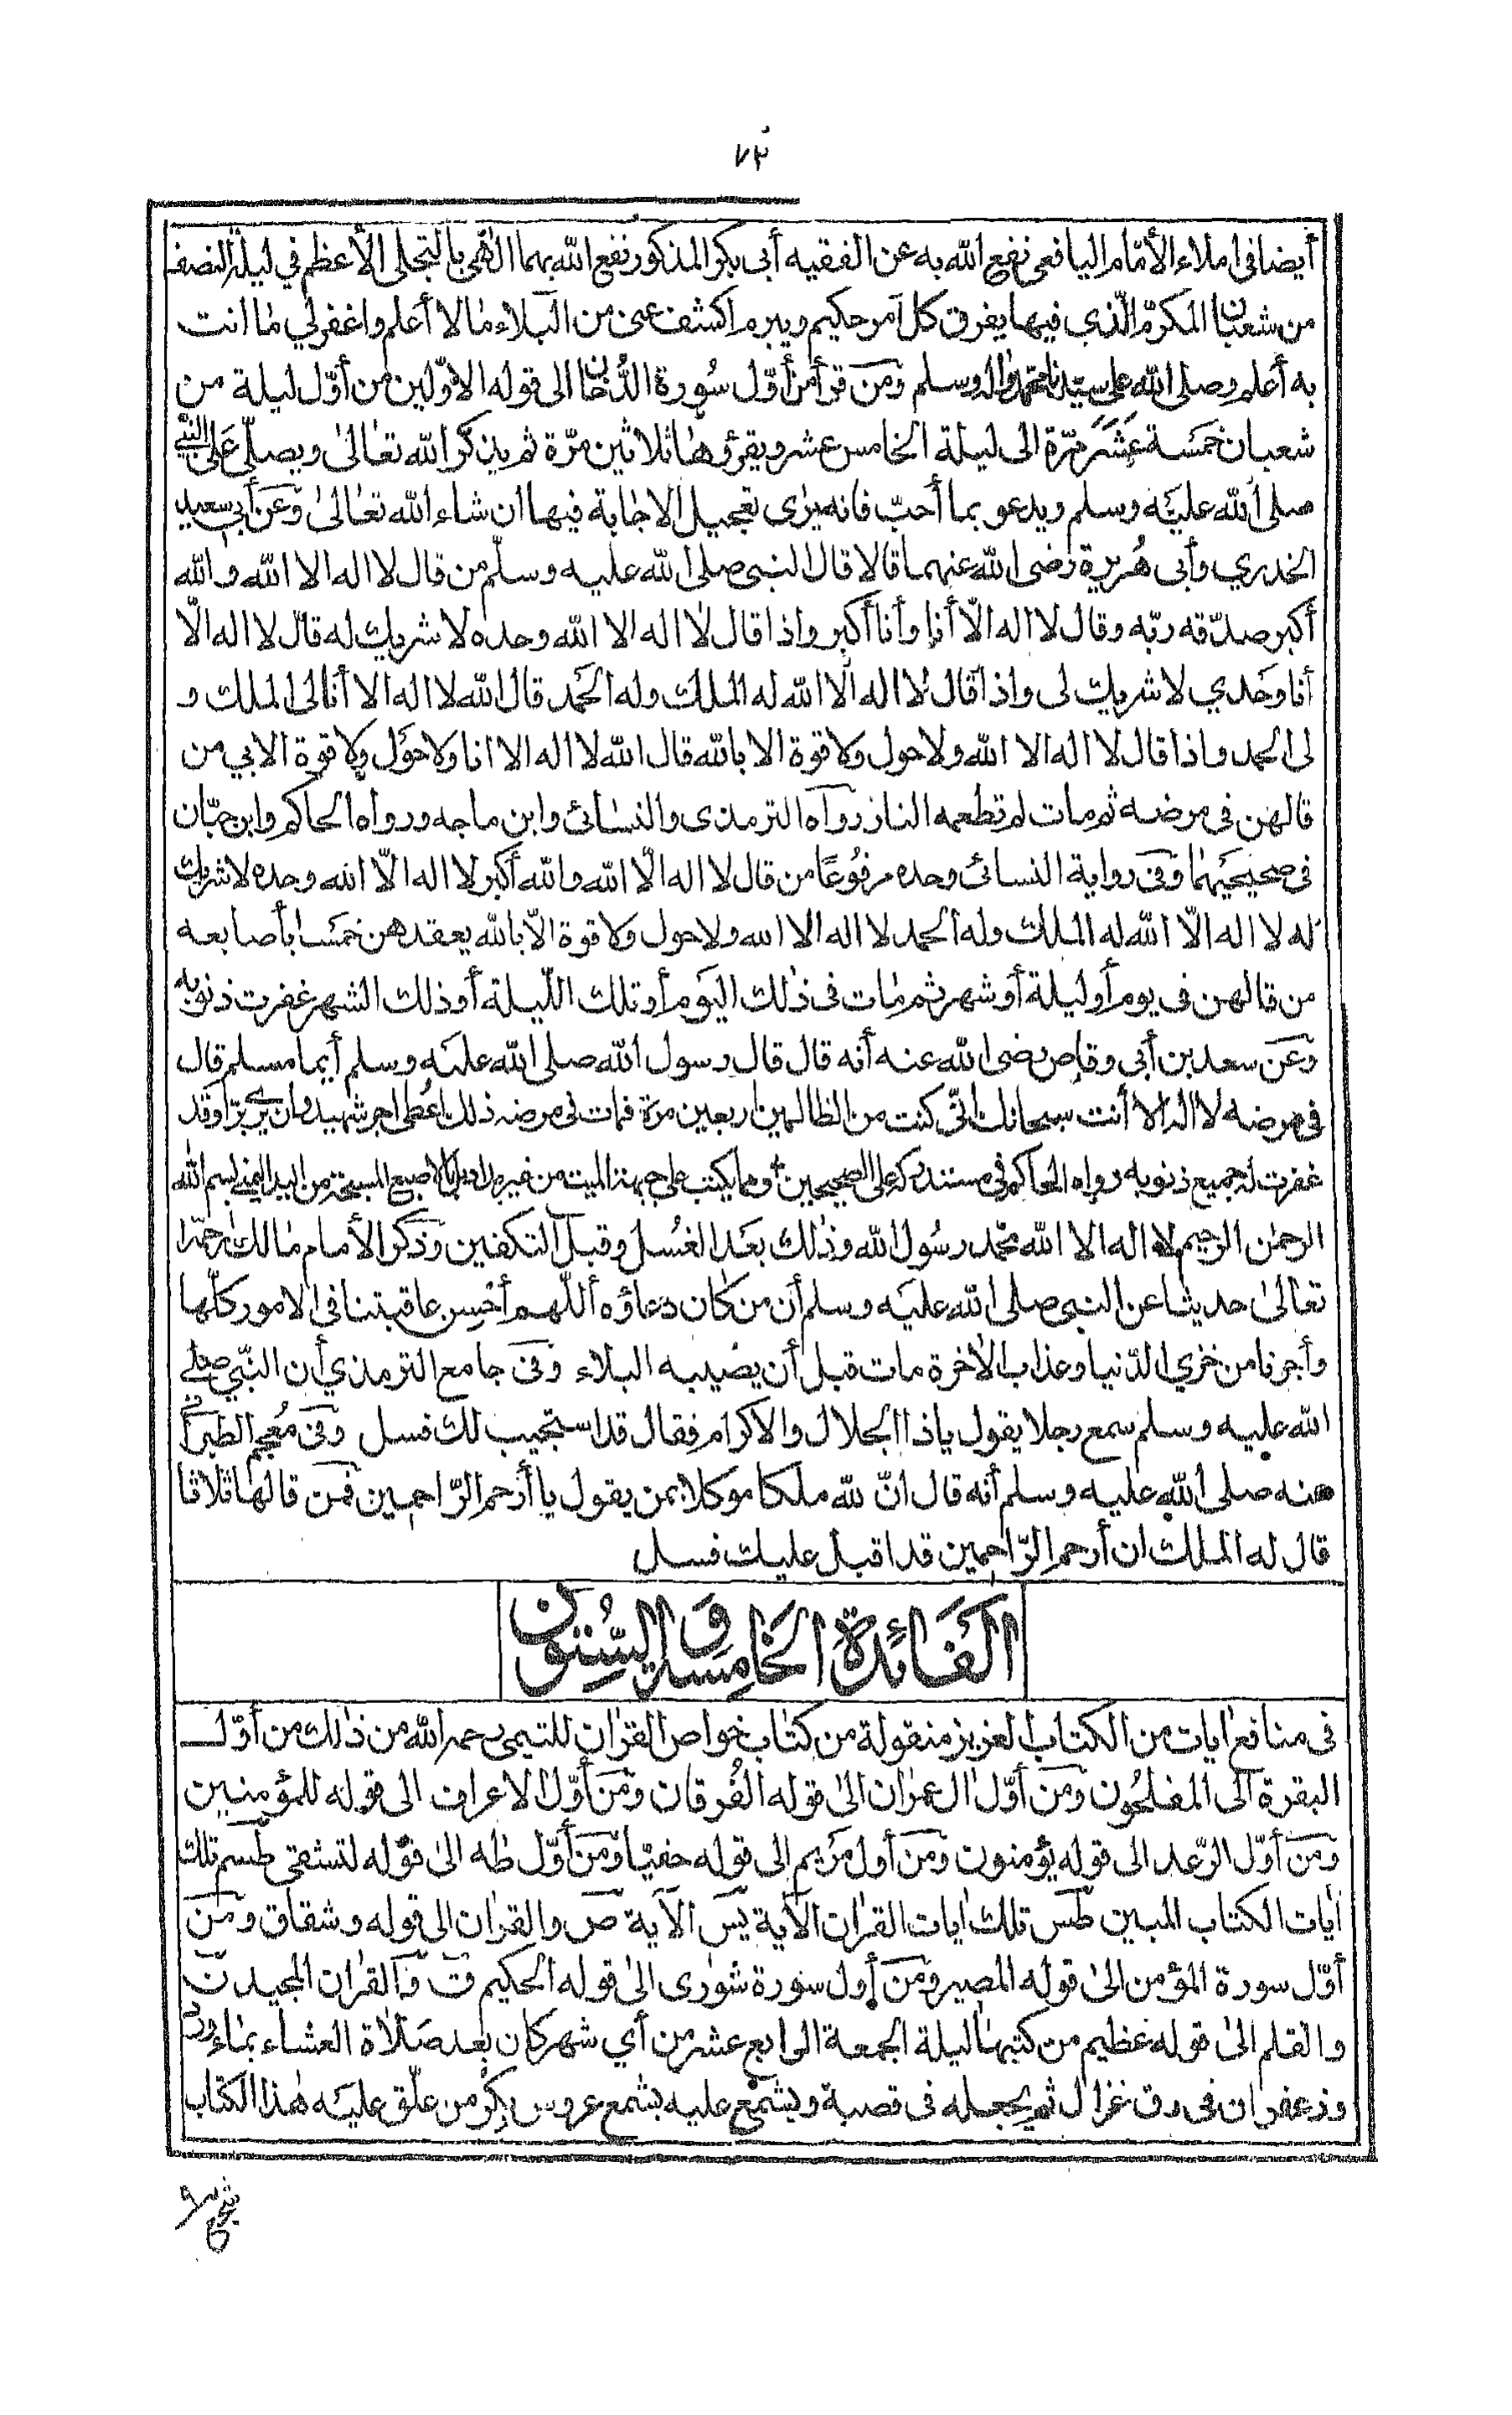 ٧٣
أيضا في املاء الأمام اليافعي نفع الله به عن الفقيه أبى بكر المذكور نفع الله بهما الٰهى بالتجلى الأعظم في ليلة النصف
من شعبان المكرم الّذي فيها يفرق كل أمر حكيم ويبرم اكشف عنى من البلاء مالا أعلم واغفرلي ما انت
به أعلم وصلى الله على سيدنا محمد واٰله وسلم ومن قرأ من أوّل سُورة الدُّخان الى قوله الاوّلين من أوّل ليلة من
شعبان خمسة عشر مرّة الى ليلة الخامس عشر ويقرؤها ثلاثين مرّة ثم يذكر الله تعالىٰ ويصلّي عَلى النبي
صلى الله عليه وسلم ويدعو بما أحبّ فانه يرى تعجيل الاجابة فيها ان شاء الله تعالىٰ وعن أبي سعيد
الخدري وأبى هُريرة رضى الله عنهما قالا قال النبى صلى الله عليه وسلّم من قال لا اله الا الله والله
أكبر صدّقه ربّه وقال لا اله الّا أنا وأنا أكبر واذا قال لا اله الا الله وحده لا شريك له قال لا اله الّا
أنا وحدي لا شريك لى واذا قال لا اله الا الله له الملك وله الحمد قال الله لا اله الا أنا لى الملك و
لى الحمد واذا قال لا اله الا الله ولا حول ولا قوة الا بالله قال الله لا اله الا انا ولا حول ولا قوة الا بي من
قالهن في مرضه ثم مات لم تطعمه النار رواه الترمذى والنسائى وابن ماجه ورواه الحاكم وابن حبّان
فى صحيحيهما وفى رواية النسائى وحده مرفُوعًا من قال لا اله الّا الله والله أكبر لا اله الّا الله وحده لا شريك
له لا اله الّا الله له الملك وله الحمد لا اله الا الله ولا حول ولا قوة الّا بالله يعقدهن خمسا بأصابعه
من قالهن فى يوم أو ليلة أو شهر ثم مات فى ذلك اليوم أو تلك اللّيلة أو ذلك الشهر غفرت ذنوبه
وعن سعد بن أبى وقاص رضى الله عنه أنه قال قال رسول الله صلى الله عليه وسلم أيما مسلم قال
فى مرضه لا اله الا أنت سبحانك انّى كنت من الظالمين أربعين مرة فمات فى مرضه ذلك اعُطى اجر شهيد وان برئ برأ وقد
غفرت له جميع ذنوبه رواه الحاكم فى مستدركه على الصحيحين ومما يكتب على جبهة الميت من غير مداد بالاصبع المسبحة من اليد اليمنى بسم الله
الرحمٰن الرحيم لا اله الا الله محمد رسُول الله وذٰلك بعد الغسل وقبل التكفين وذكر الأمام مالك رحمه الله
تعالىٰ حديثا عن النبى صلى الله عليه وسلم أن من كان دعاؤه أللّهم أحسن عاقبتنا فى الامور كلّها
وأجرنا من خزي الدّنيا وعذاب الاٰخرة مات قبل أن يصيبه البلاء وفى جامع الترمذي أن النبّي صلى
الله عليه وسلم سمع رجلا يقول ياذا الجلال والاكرام فقال قد استجيب لك فسل وفى مُعجم الطبرانى
عنه صلى الله عليه وسلم أنه قال انّ لله ملكا موكلا بمن يقول يا أرحم الرّاحمين فمن قالها ثلاثا
قال له الملك ان أرحم الرّاحمين قد اقبل عليك فسل
الفَائدة الخامسة والسّتون
فى منافع اٰيات من الكتاب العزيز منقولة من كتاب خواص القراٰن للتيمى رحمه الله من ذٰلك من أوّل
البقرة الى المفلحُون ومن أوّل اٰل عمران الىٰ قوله الفُرقان ومن أوّل الاعراف الى قوله للمؤمنين
ومن أوّل الرّعد الى قوله يؤمنون ومن أول مريم الى قوله خفيّا ومن أوّل طٰه الىٰ قوله لتشقى طٰسم تلك
اٰيات الكتاب المبين طٰس تلك اٰيات القراٰن الاٰية يٰس الاٰية ص والقراٰن الى قوله وشقاق ومن
أوّل سورة المؤمن الىٰ قوله المصير ومن أول سورة شورٰى الىٰ قوله الحكيم ق والقراٰن المجيد ن
والقلم الىٰ قوله عظيم من كتبها ليلة الجمعة الرابع عشر من أي شهر كان بعد صلاة العشاء بماء ورد
وزعفران فى رق غزال ثم يجعله فى قصبة ويشمّع عليه بشمع عروس بكر من علّق عليه هٰذا الكتاب